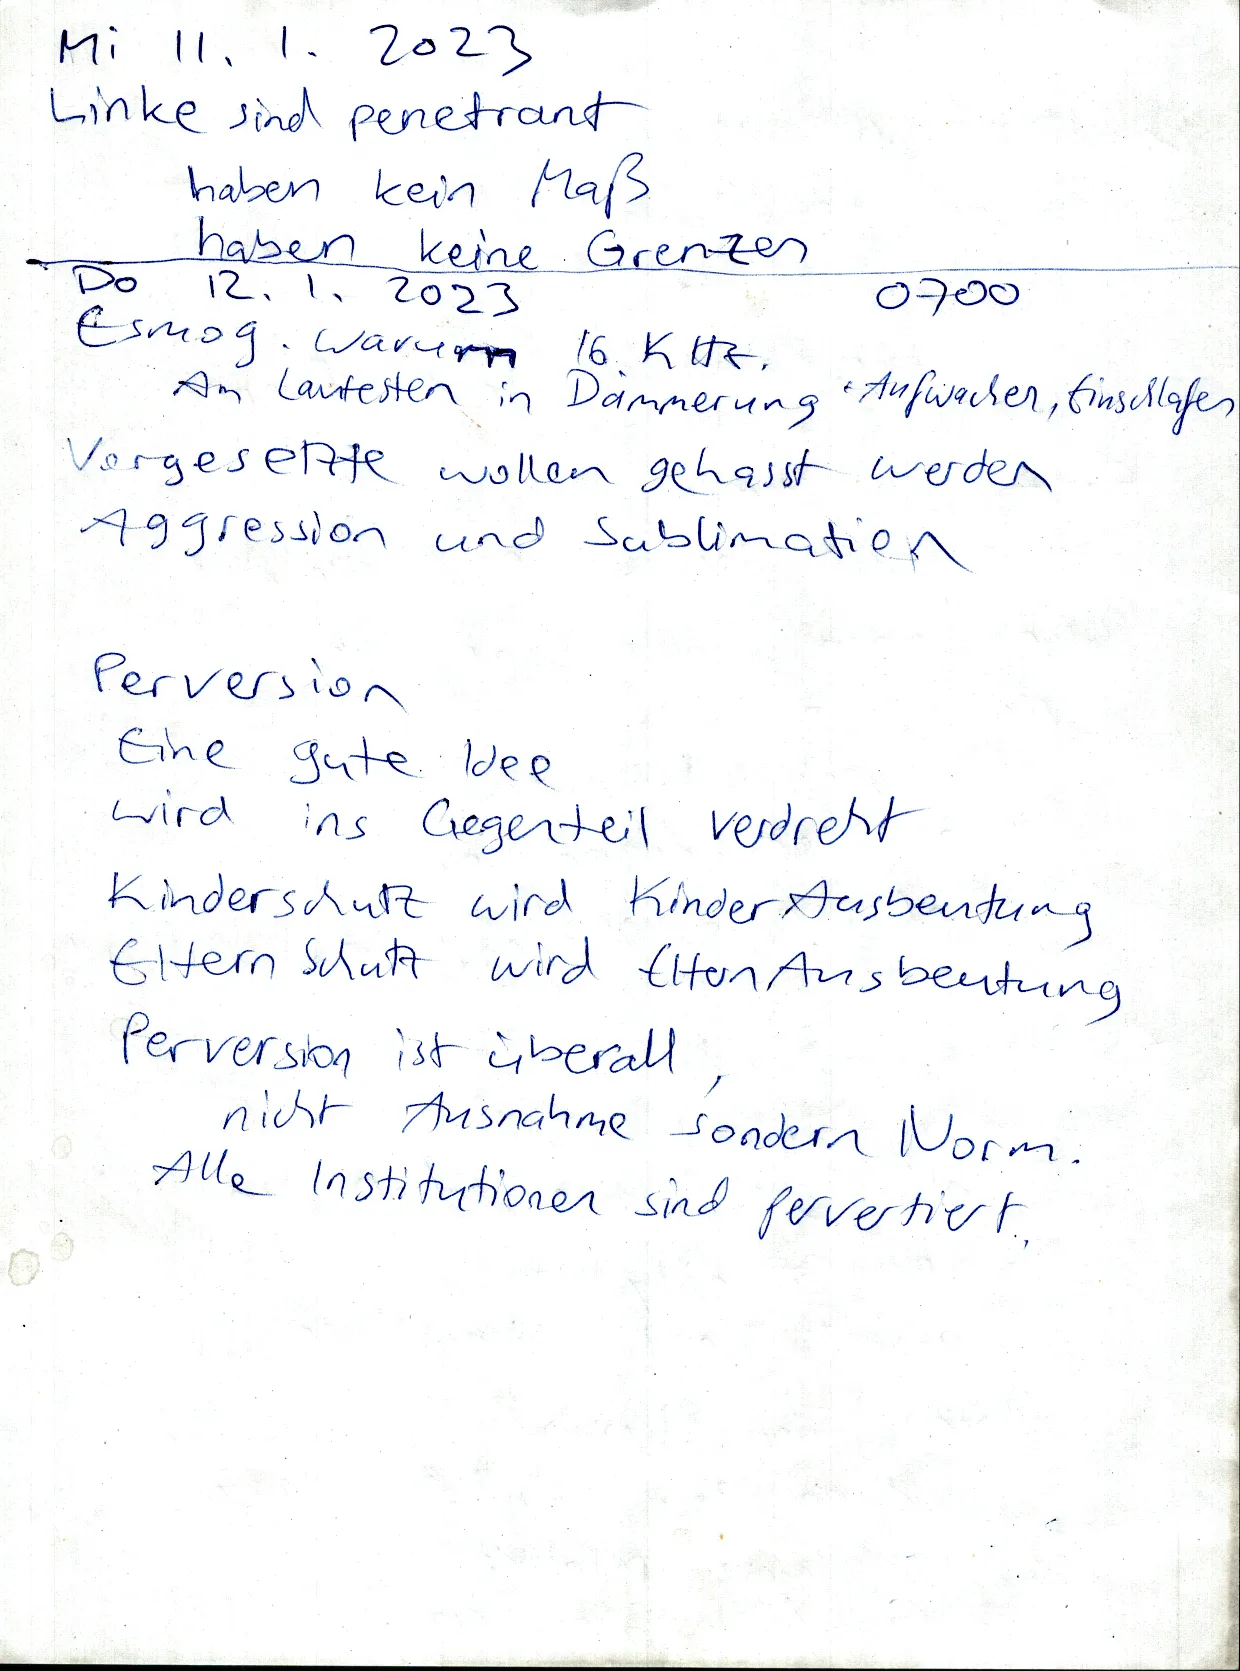 Mi 11. 1. 2023
Linke sind penetrant
haben kein Maß
haben keine Grenzen
Do 12. 1. 2023 0700
Esmog. warum 16 KHz.
Am Lautesten in Dämmerung + Aufwachen, Einschlafen
Vorgesetzte wollen gehasst werden
Aggression und Sublimation
Perversion
Eine gute Idee
wird ins Gegenteil verdreht
Kinderschutz wird KinderAusbeutung
ElternSchutz wird ElternAusbeutung
Perversion ist überall,
nicht Ausnahme sondern Norm.
Alle Institutionen sind pervertiert.